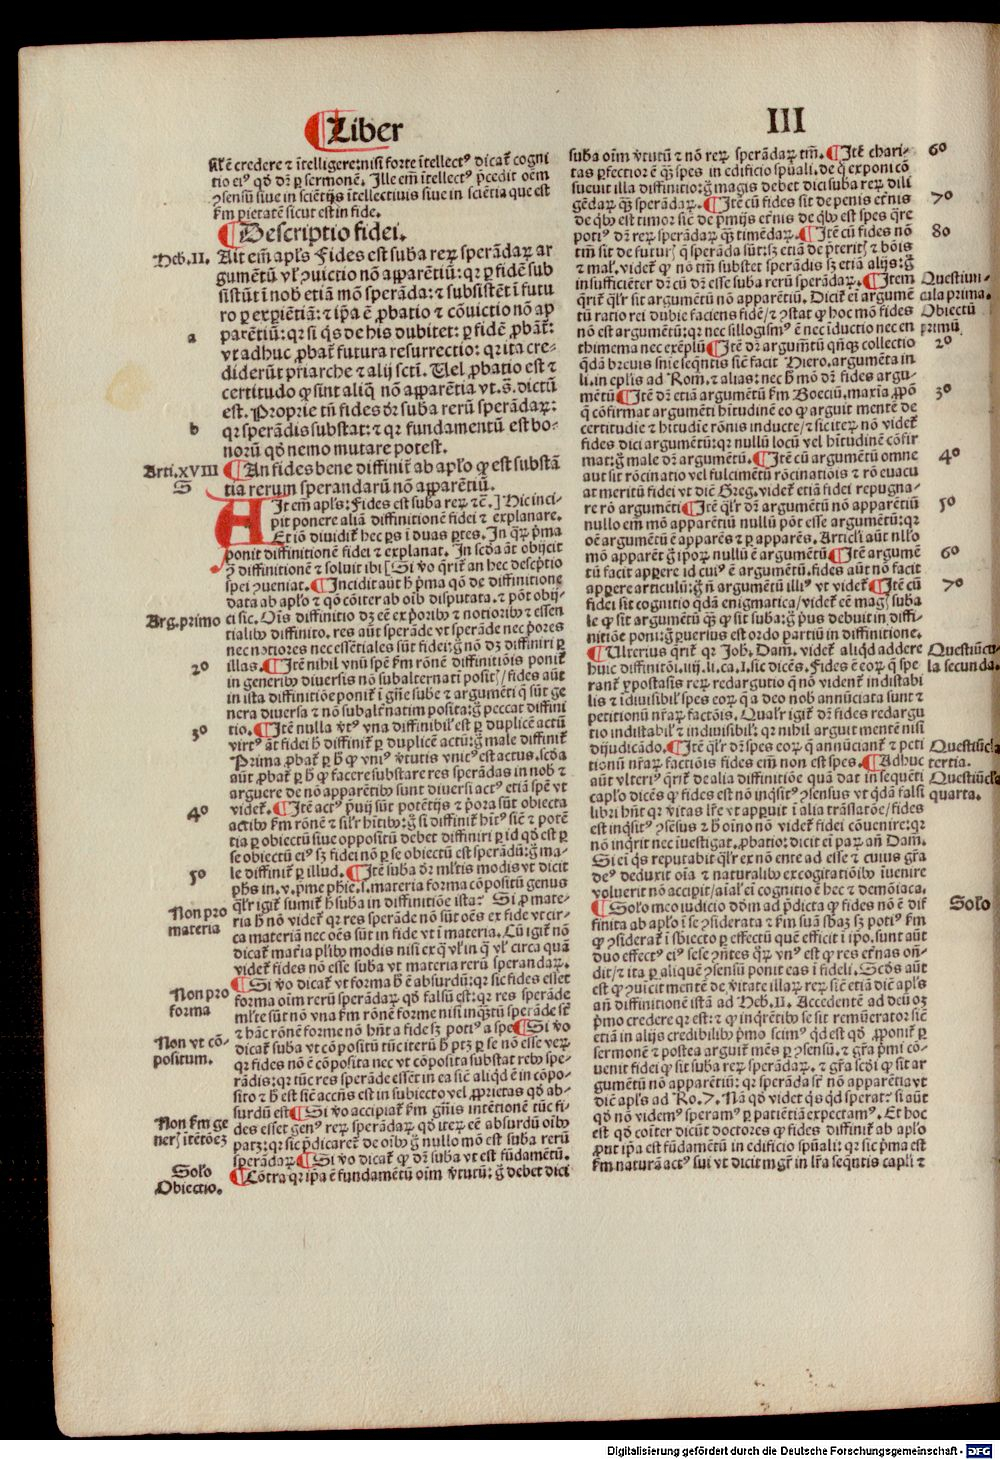 Liber
III
Al'ē credere ⁊ ītelligere: nisi forte ītellectꝰ dicat̄ cogni
tio eiꝰ qd̄ dr̄ ꝑ sermonē. Ille em̄ ītellectꝰ p̄cedit oēm
ꝯsensū siue in sciētijs ītellectiuis siue in sciētia que est
km̄ pietatē sicut est in fide.
Descriptio fidei.
Heb. II.
Ait em̄ apl's Fides est suba reꝝ sperādaꝝ ar
gumētū vl' ꝯuictio nō apparētiū: qꝛ ꝑ fidē sub
sistūt ī nob̄ etiā mō sperāda: ⁊ subsistēt ī futu
ro ꝑ exꝑiētiā: ⁊ ip̄a ē ꝓbatio ⁊ cōuictio nō ap
parētiū: qꝛ si q̄s de his dubitet: ꝑ fidē ꝓbat̄:
a
vt adhuc ꝓbat̄ futura resurrectio: qꝛ ita cre-
diderūt pr̄iarche ⁊ alij sctī. Uel ꝓbatio est ⁊
certitudo ꝙ sint aliq̄ nō apparētia vt. s̄. dictū
est. Proprie tn̄ fides dr̄ suba rerū sperādaꝝ:
b
qꝛ sperādis substat: ⁊ qꝛ fundamentū est bo-
norū qd̄ nemo mutare potest.
Arti. xVIII
An fides bene diffinit̄ ab apl'o ꝙ est substā
S
tia rerum sperandarū nō apparētiū.
AIt em̄ apl's: Fides est suba reꝝ ⁊c̄.] Hic inci-
pit ponere aliā diffinitionē fidei ⁊ explanare.
Et iō diuidit̄ hec ꝑs ī duas ꝑtes. In qꝝ p̄ma
ponit diffinitionē fidei ⁊ explanat. In scd̄a āt obijcit
ꝯ̄ diffinitionē ⁊ soluit ibi [Si v̄o q̄rit̄ an hec descptio
spei ꝯueniat. Incidit aūt h̄ p̄ma qō de diffinitione
data ab apl'o ⁊ qō cōiter ab oib̄ disputata. ⁊ pōt obij-
Arg. primo
ci sic. Oīs diffinitio dꝫ eē ex p̄oribꝰ ⁊ notioribꝰ ⁊ essen
tialibꝰ diffinito. res aūt sperāde vt sperāde nec p̄ores
nec notiores nec essētiales sūt fidei: ḡ nō dꝫ diffiniri ꝑ
2o
illas. Itē nihil vnū spēm km̄ rōnē diffinitiōis ponit̄
in generibꝰ diuersis nō subalternati positꝭ / fides aūt
in ista diffinitiōe ponit̄ ī gn̄e sube ⁊ argumēti q̄ sūt ge
nera diuersa ⁊ nō subalt̄natim posita: ḡ peccat diffini
3o
tio. Itē nulla v̄tꝰ vna diffinibil' est ꝑ duplicē actū
virtꝰ āt fidei h̄ diffinit̄ ꝑ duplicē actū: ḡ male diffinit̄
Prima ꝓbat̄ ꝑ h̄ ꝙ vniꝰ v̄tutis vnicꝰ est actus. scd̄a
aūt ꝓbat̄ ꝑ h̄ ꝙ facere substare res sperādas in nob̄ ⁊
arguere de nō apparētibꝰ sunt diuersi actꝰ etiā spē vt
4o
videt̄. Itē actꝰ p̄uij sūt potētijs ⁊ p̄ora sūt obiecta
actibꝰ km̄ rōnē ⁊ sil'r hītibꝰ: ḡ si diffinit̄ hītꝰ siē ⁊ potē
tia ꝑ obiectū siue oppositū debet diffiniri ꝑ id qd̄ est ꝑ
se obiectū eiꝰ sꝫ fidei nō ꝑ se obiectū est sperādū: ḡ ma-
5o
le diffinit̄ ꝑ illud. Itē suba dr̄ ml'tis modis vt dicit
ph̄s in. v. p̄me ph̄ie. s. materia forma cōpositū genus
q̄l'r igit̄ sumit̄ h̄ suba in diffinitiōe ista? Si ꝓ mate-
Non pro
materia
ria h̄ nō videt̄ qꝛ res sperāde nō sūt oēs ex fide vt cir-
ca materiā nec oēs sūt in fide vt ī materia. Cū igit̄ nō
dicat̄ mat̄ia plibꝰ modis nisi ex q̄ vl' in q̄ vl' circa quā
videt̄ fides nō esse suba vt materia rerū sperandaꝝ.
Si v̄o dicat̄ vt forma h̄ ē absurdū: qꝛ sic fides esset
Non pro
forma
forma oīm rerū sperādaꝝ qd̄ falsū est: qꝛ res sperāde
ml'te sūt nō vna km̄ rōnē forme nisi inq̄ntū sperāde st̄
⁊ hāc rōnē forme nō hn̄t a fide sꝫ potiꝰ a spe Si v̄o
Non vt cō-
positum.
dicat̄ suba vt cōpositū tūc iterū h̄ ptꝫ ꝑ se nō esse veꝝ
qꝛ fides nō ē cōposita nec vt cōposita substat rebꝰ spe-
rādis: qꝛ tūc res sperāde essēt in ea siē aliqd̄ ē in cōpo-
sito ⁊ h̄ est siē accn̄s est in subiecto vel ꝓprietas qd̄ ab-
surdū est Si v̄o accipiat̄ km̄ gn̄is intētionē tūc fi-
Non km̄ ge
nerꝭ ītētōeꝫ
des esset genꝰ reꝝ sperādaꝝ qd̄ iteꝝ eē absurdū oībꝰ
patꝫ: qꝛ sic p̄dicaret̄ de oībꝰ ḡ nullo mō est suba rerū
sperādaꝝ Si v̄o dicat̄ ꝙ dr̄ suba vt est fūdamētū.
Solo
Obiectio.
Cōtra qꝛ ip̄a ē fundamētū oīm v̄tutū: ḡ debet dici
suba oīm v̄tutū ⁊ nō reꝝ sperādaꝝ tm̄. Itē chari-
6o
tas ꝑfectior ē q̄ꝫ spes in edificio spūali. de q̄ exponi cō
sueuit illa diffinitio: ḡ magis debet dici suba reꝝ dili
gēdaꝝ q̄ꝫ sperādaꝝ. Itē cū fides sit de penis et̄nis
7o
de qꝰbꝰ est timor siē de p̄mijs et̄nis de qꝰbꝰ est spes q̄re
potiꝰ dr̄ reꝝ sperādaꝝ q̄ꝫ timēdaꝝ. Itē cū fides nō
8o
tm̄ sit de futurꝭ q̄ sperāda sūt: sꝫ etiā de p̄teritꝭ ⁊ bōis
⁊ mal'. videt̄ ꝙ nō tm̄ substet sperādis sꝫ etiā alijs: ḡ
insufficiēter dr̄ cū dr̄ esse suba rerū sperādaꝝ. Item
Questiun-
cula prima.
q̄rit̄ ql'r sit argumētū nō apparētiū. Dicit̄ ei argumē
tū ratio rei dubie faciens fidē / ⁊ ꝯstat ꝙ hoc mō fides
Obiectū
primū
nō est argumētū: qꝛ nec sillogismꝰ ē nec īductio nec en
thimema nec exēplū Itē dr̄ argum̄tū qn̄qꝫ collectio
2o
q̄dā breuis sn̄ie seq̄ntis siē facit Hiero. argumēta in
li. in epl'is ad Rom. ⁊ alias: nec h̄ mō dr̄ fides argu-
mētū Itē dr̄ etiā argumētū km̄ Boeciū. maxīa ꝓpō
3o
q̄ cōfirmat argumēti hītudinē eo ꝙ arguit mentē de
certitudie ⁊ hītudīe rōnis inducte / ⁊ sic iteꝝ nō videt̄
fides dici argumētū: qꝛ nullū locū vel hītudinē cōfir
mat: ḡ male dr̄ argumētū. Itē cū argumētū omne
4o
aut sit rōcinatio vel fulcimētū rōcinatiōis ⁊ rō euacu
at meritū fidei vt diē Greg. videt̄ etiā fidei repugna-
re rō argumēti Itē ql'r dr̄ argumētū nō apparētiū
5o
nullo em̄ mō apparētiū nullū pōt esse argumētū: qꝛ
oē argumētū ē apparēs ⁊ ꝑ apparēs. Articl'i aūt nll'o
mō apparēt ḡ ip̄oꝝ nullū ē argumētū Itē argumē
6o
tū facit apꝑere id cuiꝰ ē argumētū. fides aūt nō facit
apꝑere articulū: ḡ n̄ argumētū illiꝰ vt videt̄ Itē cū
7o
fidei sit cognitio q̄dā enigmatica / videt̄ eē magꝭ suba
le ꝙ sit argumētū q̄ꝫ ꝙ sit suba: ḡ p̄us debuit in diffi-
nitiōe poni: ḡ ꝑuerius est ordo partiū in diffinitione.
Ulterius q̄rit̄ qꝛ Joh. Dam. videt̄ aliqd̄ addere
Questiūcu-
la secunda.
huic diffinitōi. iiij. li. ca. I. sic dicēs. Fides ē eoꝝ q̄ spe
rant̄ ypostasis reꝝ redargutio q̄ nō vident̄ indistabi
lis ⁊ īdiuisibil' spes eoꝝ q̄ a deo nob̄ annūciata sunt ⁊
petitionū nr̄aꝝ factōis. Qual'r igit̄ dr̄ fides redargu
tio indistabil' ⁊ indiuisibil': qꝛ nihil arguit mentē nisi
dijudicādo. Itē ql'r dr̄ spes eoꝝ q̄ annūciant̄ ⁊ peti
Questiūcla
tertia.
tionū nr̄aꝝ factiōis fides em̄ non est spes. Adhuc
aūt vlteriꝰ q̄rit̄ de alia diffinitiōe quā dat in sequēti
Questiūcla
quarta.
capl'o dicēs ꝙ fides est nō inq̄sitꝰ ꝯsensus vt q̄dā falsi
libri hn̄t qꝛ vitas lr̄e vt apꝑuit ī alia trāslatōe / fides
est inq̄sitꝰ ꝯsēsus ⁊ h̄ oīno nō videt̄ fidei cōuenire: qꝛ
nō inq̄rit nec iuestigat. Probatio: dicit ei paꝝ añ Dam.
Si ei q̄s reputabit ql'r ex nō ente ad esse ⁊ cuius gr̄a
deꝰ deduxit oīa ⁊ naturalibꝰ excogitatiōibꝰ iuenire
voluerit nō accipit / aīal' ei cognitio ē hec ⁊ demōiaca.
Solo
Solo meo iudicio dōm ad p̄dicta ꝙ fides nō ē dif
finita ab apl'o ī se ꝯsiderata ⁊ km̄ suā sb̄aꝫ sꝫ potiꝰ km̄
ꝙ ꝯsiderat̄ ī sb̄iecto ꝑ effectū quē efficit ī ip̄o. sunt aūt
duo effectꝰ eiꝰ sese ꝯn̄tes qꝝ vnꝰ est ꝙ res et̄nas oñ-
dit / ⁊ ita ꝑ aliquē ꝯsensū ponit eas ī fideli. Scd̄s aūt
est ꝙ ꝯuicit mentē de v̄itate illaꝝ reꝝ siē etiā diē apl's
añ diffinitionē istā ad Heb. II. Accedentē ad deū oꝫ
p̄mo credere qꝛ est: ⁊ ꝙ inq̄rētibꝰ se sit remūerator siē
etiā in alijs credibilibꝰ p̄mo scimꝰ qd̄ est qd̄ ꝓponit̄ ꝑ
sermonē ⁊ postea arguit̄ mēs ꝑ ꝯsensū. ⁊ gr̄a p̄mi cō-
uenit fidei ꝙ sit suba reꝝ sperādaꝝ. ⁊ gr̄a scd̄i ꝙ sit ar
gumētū nō apparētiū: qꝛ sperāda sr̄ nō apparētia vt
diē apl's ad Ro. 7. Nā qd̄ videt q̄s qd̄ sperat: si aūt
qd̄ nō videmꝰ speramꝰ ꝑ patiētiā expectamꝰ. Et hoc
est qd̄ cōiter dicūt doctores ꝙ fides diffinit̄ ab apl'o
ꝓut ip̄a est fūdamētū in edificio spūali: qꝛ sic p̄ma est
km̄ naturā actꝰ sui vt dicit mgr̄ in lr̄a seq̄ntis capl'i ⁊
Digitalisierung gefördert durch die Deutsche Forschungsgemeinschaft - DFG